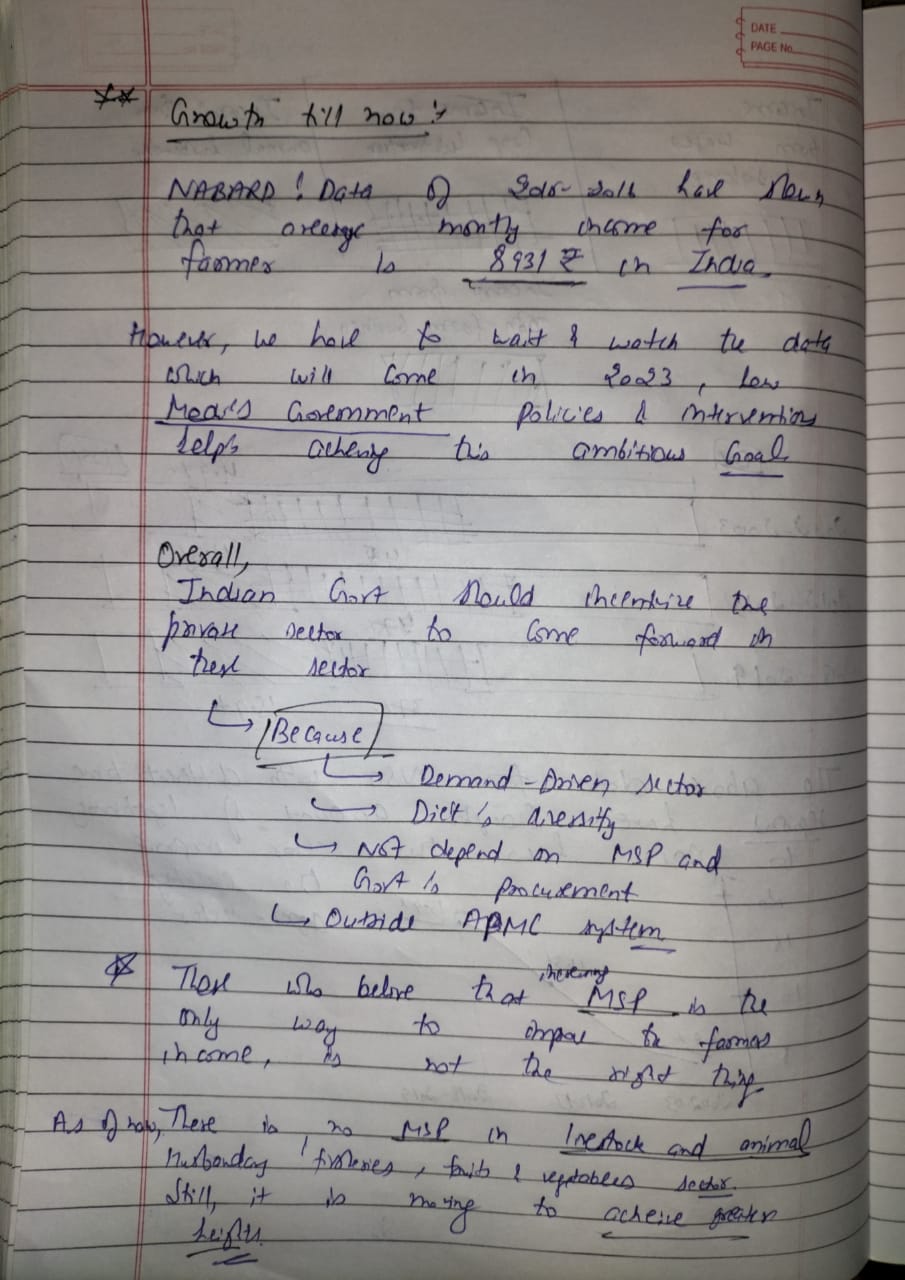 DATE
PAGE No.
Growth till now :
NABARD : Data of 2015-2016 have shown
that average montly income for
farmer is 8931 ₹ in India.
However, we have to wait & watch the data
which will come in 2023, how
Modi's Government policies & interventions
helps acheving this ambitious Goal
Overall,
Indian Govt should incentivize the
private sector to come forward in
these sector
Because
Demand-Driven sector
Diet's diversity
Not depend on MSP and
Govt's procurement
Outside APMC system
increasing
Those who belive that MSP is the
only way to the farmers
income, is not the right thing
As of now, There is no MSP in livestock and animal
Husbandry, fisheries, fruits & vegetables sector.
Still, it is moving to acheive greater
heights.